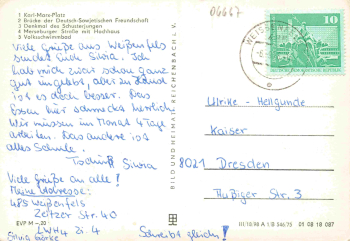 1 Karl-Marx-Platz
2 Brücke der Deutsch-Sowjetischen Freundschaft
3 Denkmal des Schusterjungen
4 Merseburger Straße mit Hochhaus
5 Volksschwimmbad
Viele Grüße aus Weißenfels
sendet Euch Silvia. Ich
hab mich zwar schon ganz
gut eingelebt, aber zu Hause
ist es doch besser. Das
Essen hier schmeckt herrlich.
Wir müssen im Monat 4 Tage
arbeiten. Das andere ist
alles Schule.
Tschüß Silvia
Viele Grüße an alle!
Meine Adresse:
485 Weißenfels
Zeitzer Str. 40
LWH 4 Zi. 4
Schreibt gleich!
EVP M -,20
BILD UND HEIMAT REICHENBACH I. V.
06667
WEISSENFELS
10
Ulrike - Heligunde
Kaiser
8021 Dresden
Altenberger Str. 3
III/18/98 A 1/B 546/75 01 08 18 087